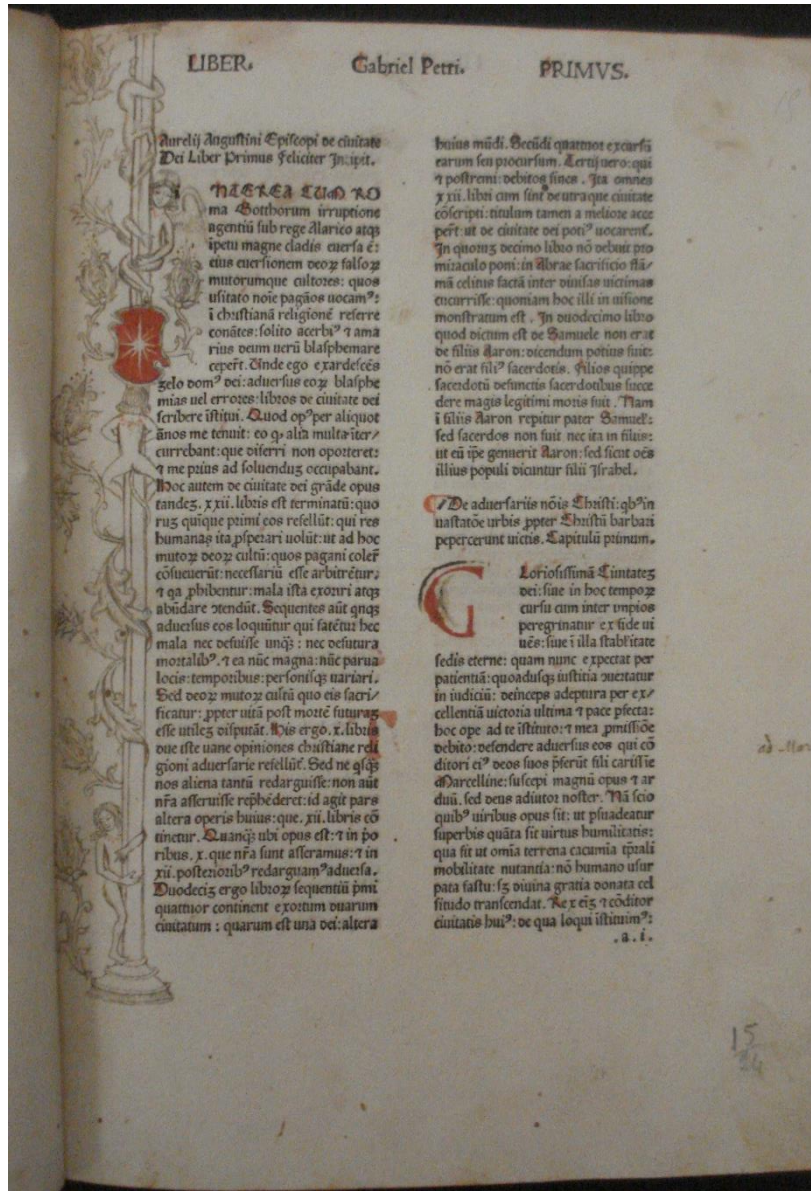 LIBER. Gabriel Petri. PRIMVS.
Aurelij Augustini Episcopi de ciuitate
Dei Liber Primus feliciter Incipit.
INTEREA CUM RO
ma Gotthorum irruptione
agentiū sub rege Alarico atqꝫ
īpetu magne cladis euersa ē:
eius euersionem deoꝝ falsoꝝ
mutorumque cultores: quos
usitato noīe pagāos uocamꝰ:
ī christianā religionē referre
conātes: solito acerbiꝰ ⁊ ama
rius deum uerū blasphemare
ceperūt. Unde ego exardescēs
zelo domꝰ dei: aduersus eoꝝ blasphe
mias uel errores: libros de ciuitate dei
scribere īstitui. Quod opꝰ per aliquot
ānos me tenuit: eo ꝙ alia multa īter/
currebant: que differri non oporteret:
⁊ me prius ad soluenduꝫ occupabant.
Hoc autem de ciuitate dei grāde opus
tandeꝫ .xxii. libris est terminatū: quo
ruꝫ quique primi eos refellūt: qui res
humanas ita ꝓsperari uolūt: ut ad hoc
mutoꝝ deoꝝ cultū: quos pagani colere
cōsueuerūt: necessariū esse arbitrētur:
⁊ qa ꝓhibentur: mala ista exoriri atqꝫ
abūdare ↄtendūt. Sequentes aūt qnqꝫ
aduersus eos loquūtur qui fatētur hec
mala nec defuisse unqꝫ: nec defutura
mortalibꝰ. ⁊ ea nūc magna: nūc parua
locis: temporibus: personisqꝫ uariari.
Sed deoꝝ mutoꝝ cultū quo eis sacri/
ficatur: ꝓpter uitā post mortē futuraꝫ
esse utileꝫ disputāt. His ergo .x. libris
due iste uane opiniones christiane reli
gioni aduersarie refellūt. Sed ne qsqꝫ
nos aliena tantū redarguisse: non aūt
nr̄a asseruisse rep̄hēderet: id agit pars
altera operis huius: que .xii. libris cō
tinetur. Quanqꝫ ubi opus est: ⁊ in po
ribus .x. que nr̄a sunt asseramus: ⁊ in
xii. posterioribꝰ redarguamꝰ aduersa.
Duodeciꝫ ergo libroꝝ sequentiū pͥmi
quattuor continent exortum duarum
ciuitatum: quarum est una dei: altera
huius mūdi. Secūdi quattuor excursū
earum seu procursum. Tertij uero: qui
⁊ postremi: debitos fines. Ita omnes
xxii. libri cum sint de utraque ciuitate
cōscripti: titulum tamen a meliore acce
perūt: ut de ciuitate dei potiꝰ uocarent̄.
In quoruꝫ decimo libro nō debuit pro
miraculo poni: in Abrae sacrificio flā/
mā celitus factā inter diuisas uictimas
cucurrisse: quoniam hoc illi in uisione
monstratum est. In duodecimo libro
quod dictum est de Samuele non erat
de filiis Aaron: dicendum potius fuit:
nō erat filiꝰ sacerdotis. Filios quippe
sacerdotū defunctis sacerdotibus succe
dere magis legitimi moris fuit. Nam
ī filiis Aaron repitur pater Samuel':
sed sacerdos non fuit nec ita in filiis:
ut eū ip̄e genuerit Aaron: sed sicut oēs
illius populi dicuntur filii Israhel.
De aduersariis nōis Christi: qbꝰ in
uastatōe urbis ꝓpter Christū barbari
pepercerunt uictis. Capitulū primum.
GLoriosissimā Ciuitateꝫ
dei: siue in hoc tempoꝝ
cursu cum inter impios
peregrinatur ex fide ui
uēs: siue ī illa stabilitate
sedis eterne: quam nunc expectat per
patientiā: quoadusqꝫ iustitia ↄuertatur
in iudiciū: deinceps adeptura per ex/
cellentiā uictoria ultima ⁊ pace ꝑfecta:
hoc ope ad te īstituto: ⁊ mea ꝓmissiōe
debito: defendere aduersus eos qui cō
ditori eiꝰ deos suos p̄ferūt fili carissie
Marcelline: suscepi magnū opus ⁊ ar
duū. sed deus adiutor noster. Nā scio
quibꝰ uiribus opus sit: ut ꝑsuadeatur
superbis quāta sit uirtus humilitatis:
qua fit ut omia terrena cacumia tp̄rali
mobilitate nutantia: nō humano usur
pata fastu: sꝫ diuina gratia donata cel
situdo transcendat. Rex eiꝫ ⁊ cōditor
ciuitatis huiꝰ: de qua loqui īstituimꝰ:
.a.i.
15
24